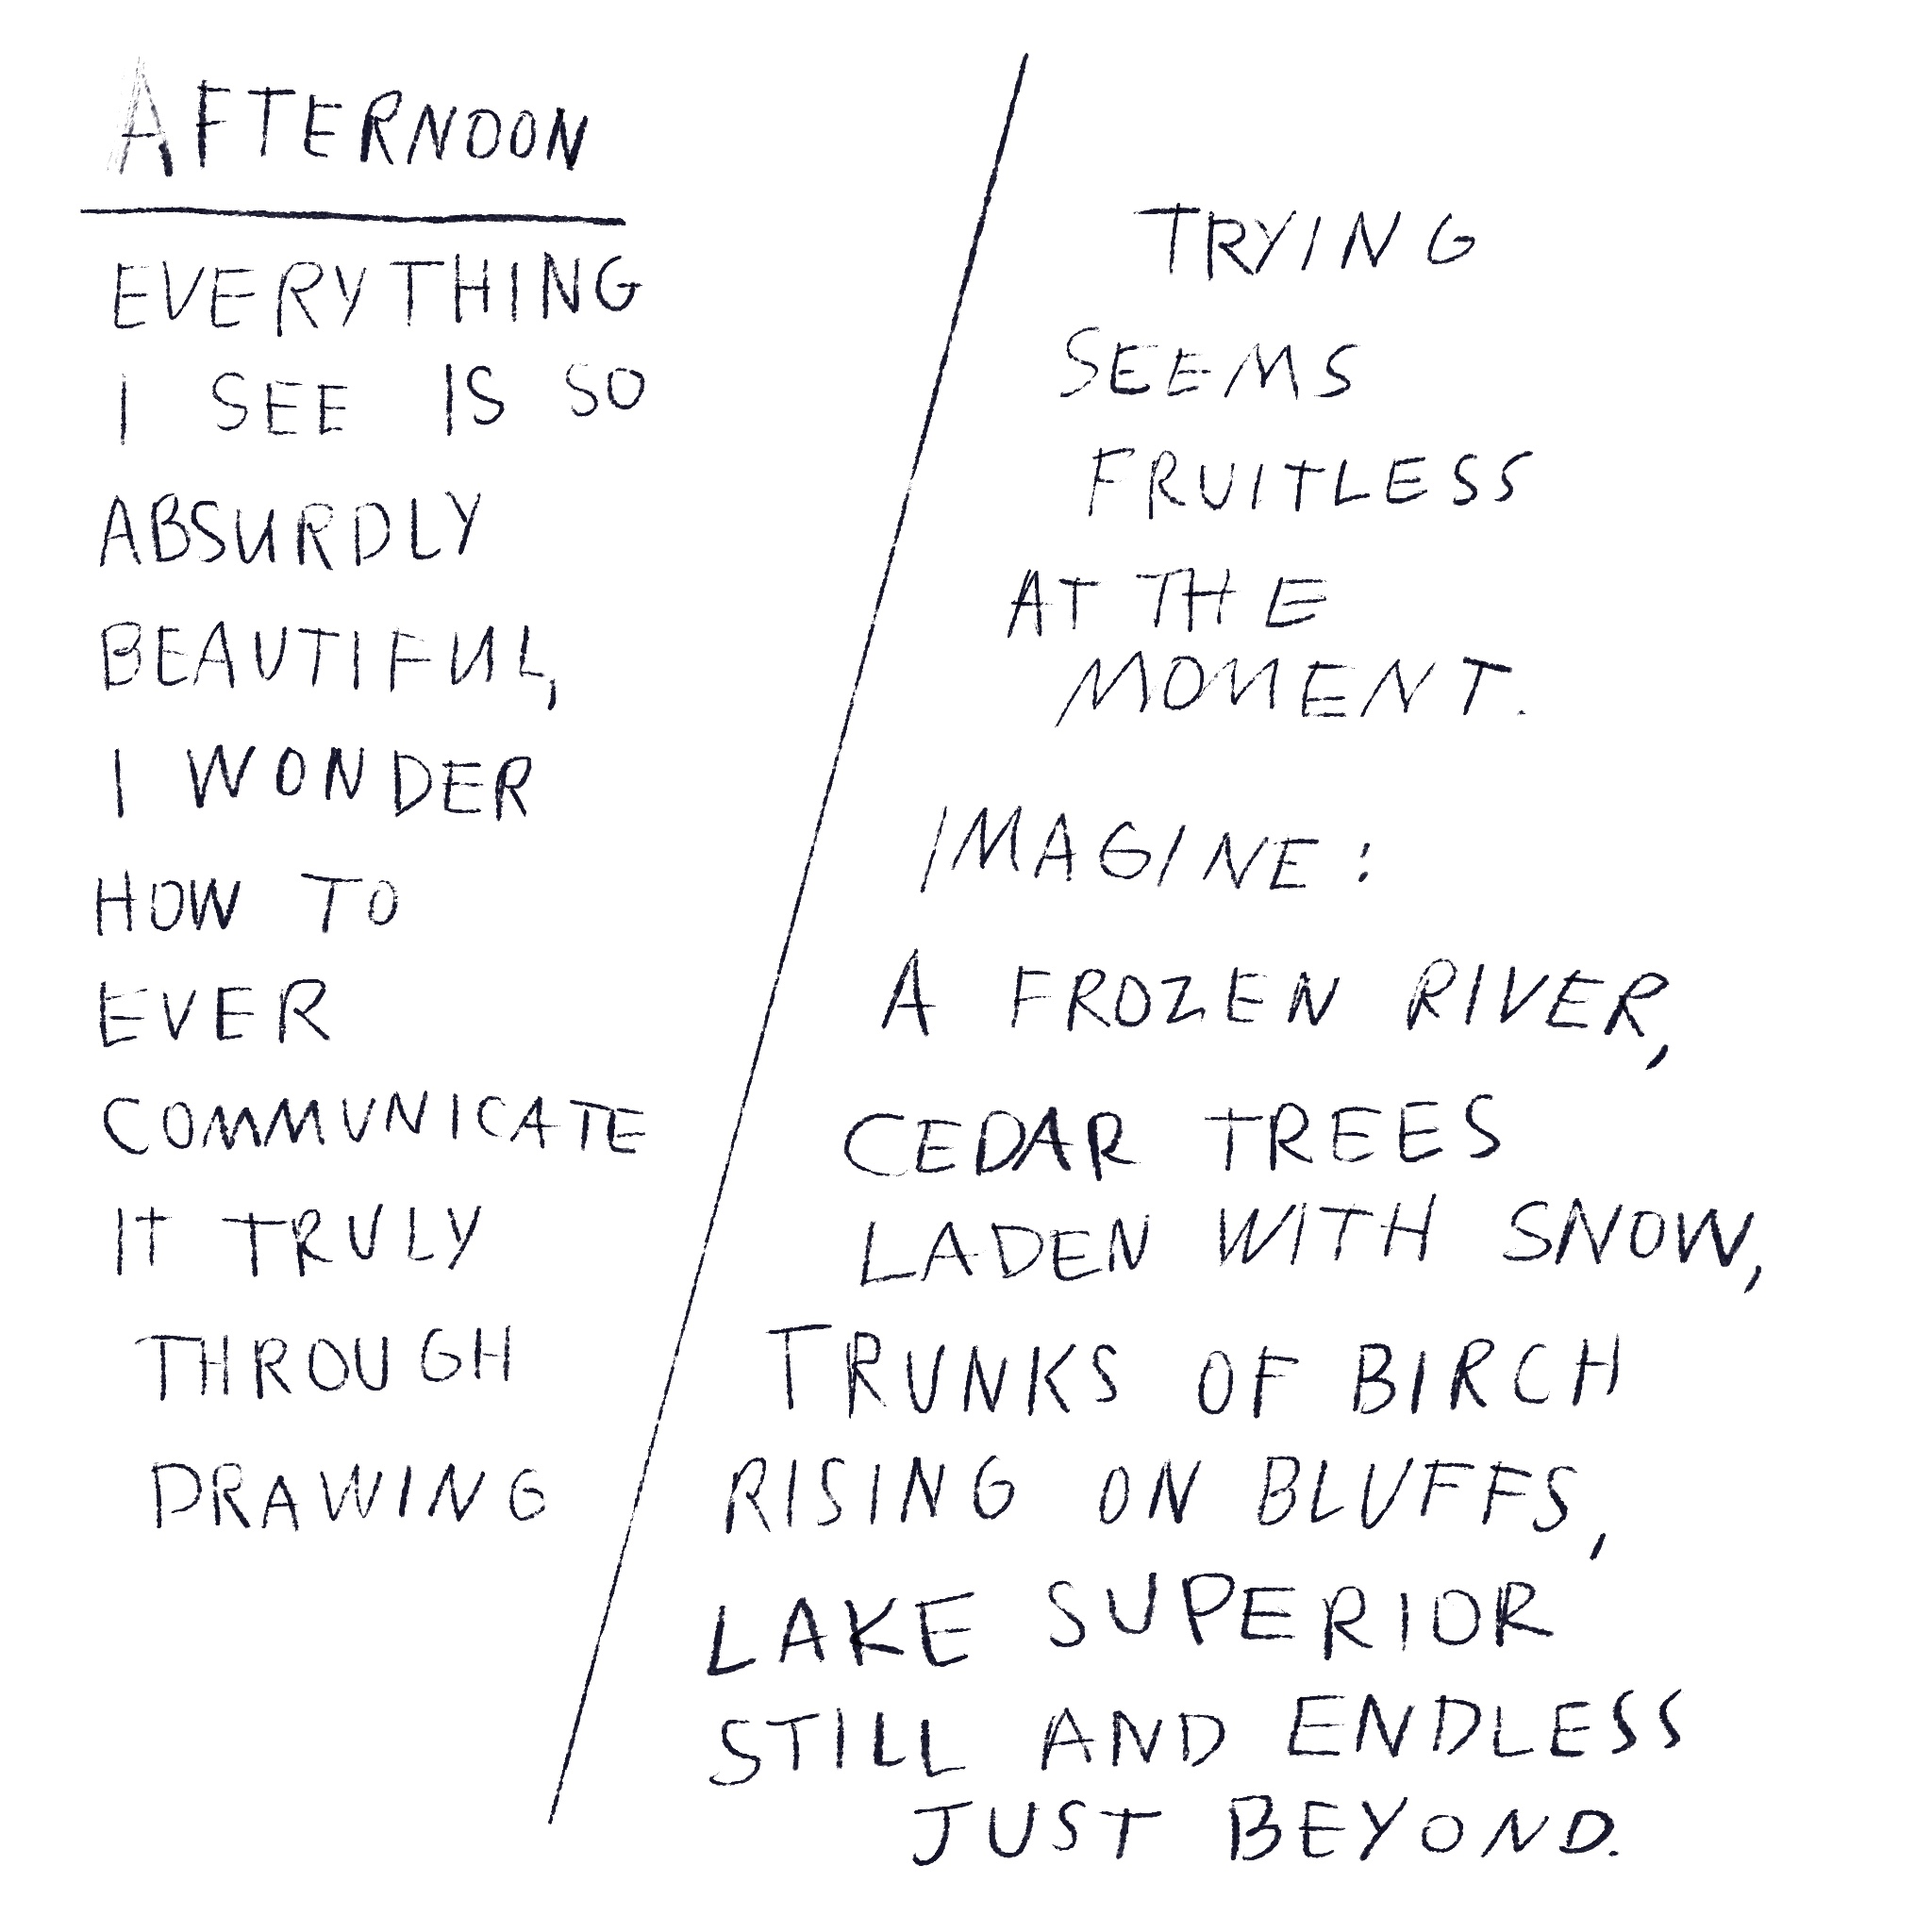 AFTERNOON
EVERYTHING
I SEE IS SO
ABSURDLY
BEAUTIFUL,
I WONDER
HOW TO
EVER
COMMUNICATE
IT TRULY
THROUGH
DRAWING
TRYING
SEEMS
FRUITLESS
AT THE
MOMENT.
IMAGINE:
A FROZEN RIVER,
CEDAR TREES
LADEN WITH SNOW,
TRUNKS OF BIRCH
RISING ON BLUFFS,
LAKE SUPERIOR
STILL AND ENDLESS
JUST BEYOND.